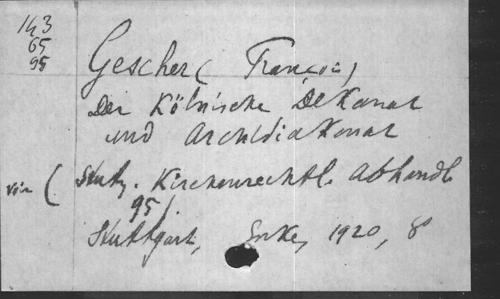 143
65
95
Gescher (François)
Der Kölnische Dekanat
und Archidiakonat
voir (Stutz. Kirchenrechtl. Abhandl
95)
Stuttgart, Enke, 1920, 8°